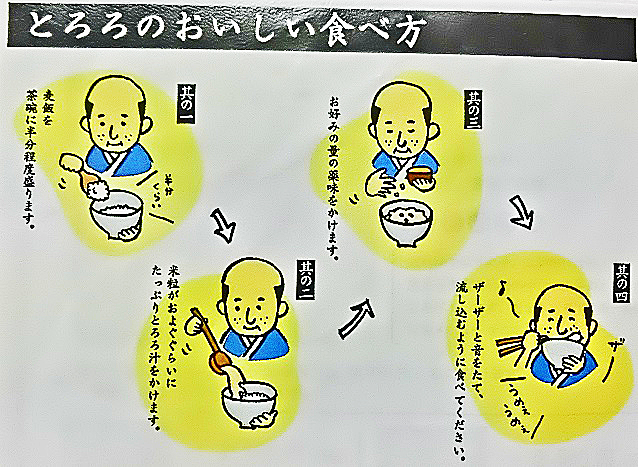 とろろのおいしい食べ方
其の一
麦飯を
茶碗に半分程度盛ります。
半分
くらい
其の二
米粒がおよぐぐらいに
たっぷりとろろ汁をかけます。
其の三
お好みの量の薬味をかけます。
其の四
ザーザーと音をたて、
流し込むように食べてください。
ザー
うめぇ
うめぇ